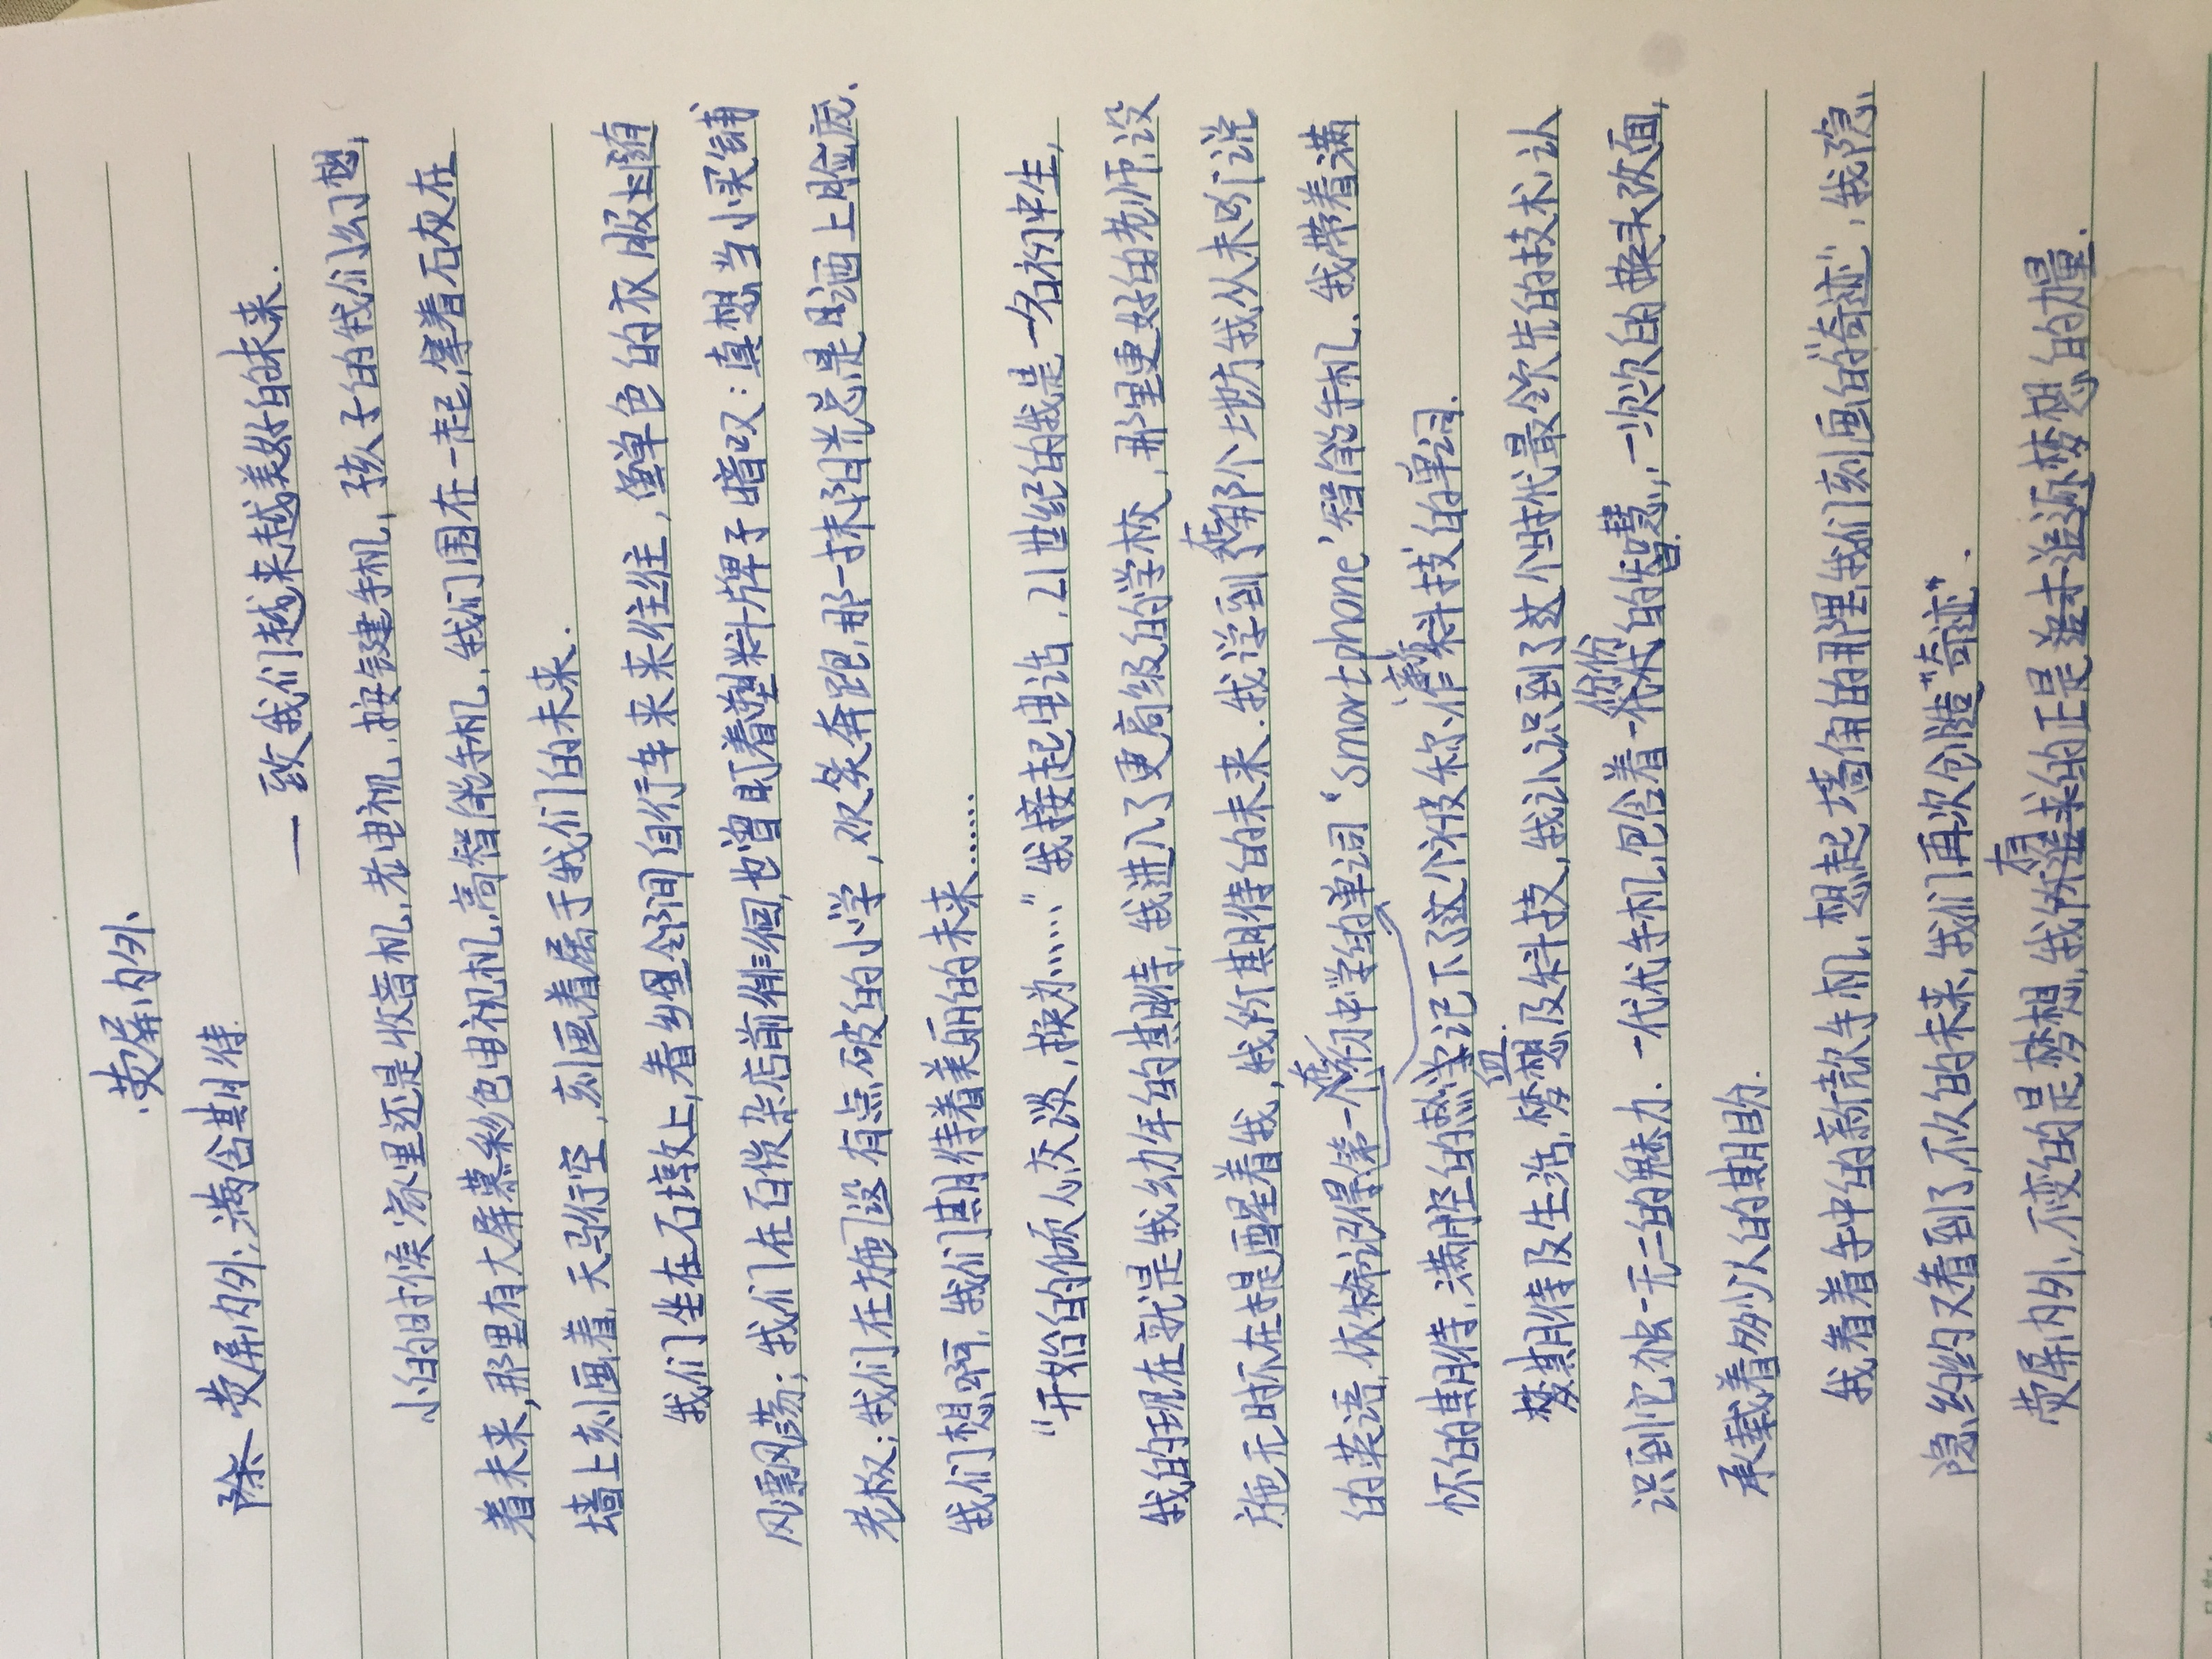 荧屏内外
荧屏内外,满含期待
——致我们越来越美好的未来.
小的时候家里还是收音机,老电视,按键手机,孩子的我们幻想
着未来,那里有大屏幕彩色电视机,高智能手机,我们围在一起,拿着石灰在
墙上刻画着,天马行空,刻画着属于我们的未来.
我们坐在石墩上,看乡里邻间自行车来来往往,单色的衣服随
风飘荡;我们在百货杂店前徘徊,也曾盯着塑料牌子暗叹:真想当小买铺
老板;我们在拖沓有点破的小学,欢笑奔跑,那一抹阳光总是洒上脸庞.
我们想啊,我们期待着美丽的未来……
“开始的倾人交谈,换为……”我接起电话,21世纪的我是一名初中生,
我的现在就是我幼年的期待,我进入了更高级的学校,那里更好的老师设
施无时不在提醒着我,我的期待的未来.我学到了在那个地方我从未听说
的英语,依稀记得第一个初中学的单词‘smartphone’智能手机.我带着满
怀的期待,满腔的热血记下了这个被称作高科技的单词.
期待及生活,梦想及科技,我认识到了这个时代最领先的技术,认
识到它独一无二的魅力.一代代手机,包含着一份份的智慧,一次次的换头改面,
承载着多少人的期盼.
我看着手中的新款手机,想起墙角的那里我们刻画的“奇迹”,我隐
隐约约又看到了不久的未来,我们再次创造“奇迹”.
荧屏内外,不变的是梦想,我们有的正是追逐梦想的力量.